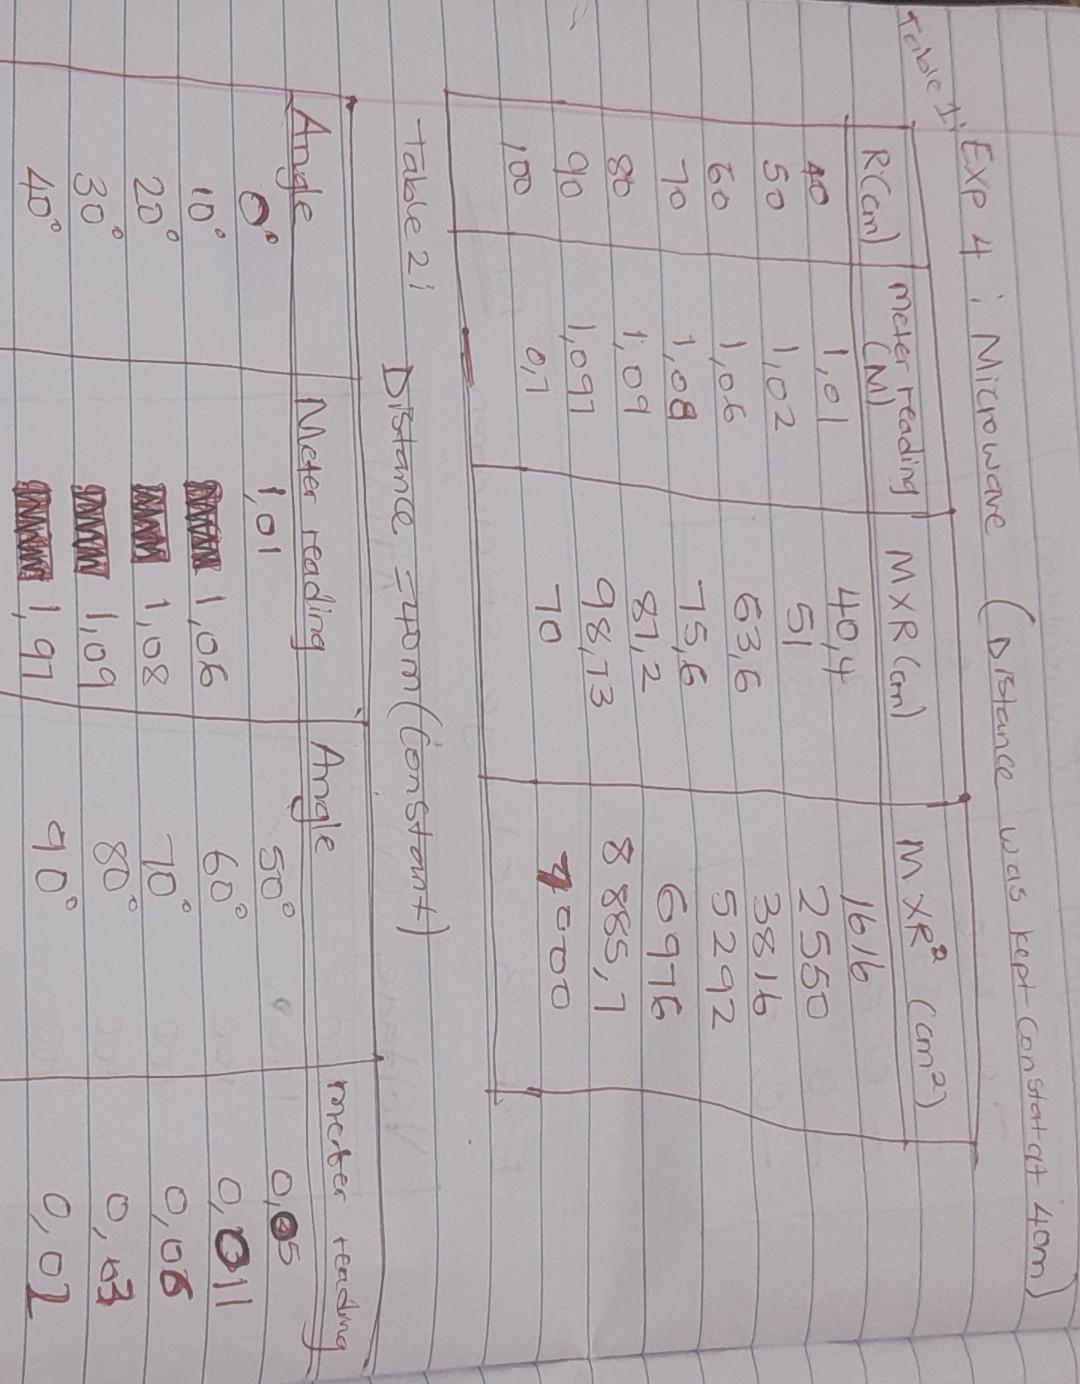 Exp 4 : Microwave (Distance was kept constat at 40m)
Table 1:
R(cm) Meter reading (M) M x R (cm) M x R² (cm²)
40 1,01 40,4 1616
50 1,02 51 2550
60 1,06 63,6 3816
70 1,08 75,6 5292
80 1,09 87,2 6976
90 1,097 98,73 8885,7
100 0,7 70 7000
Table 2: Distance = 40m (Constant)
Angle Meter reading Angle meter reading
0° 1,01 50° 0,05
10° 1,06 60° 0,011
20° 1,08 70° 0,06
30° 1,09 80° 0,03
40° 1,97 90° 0,02